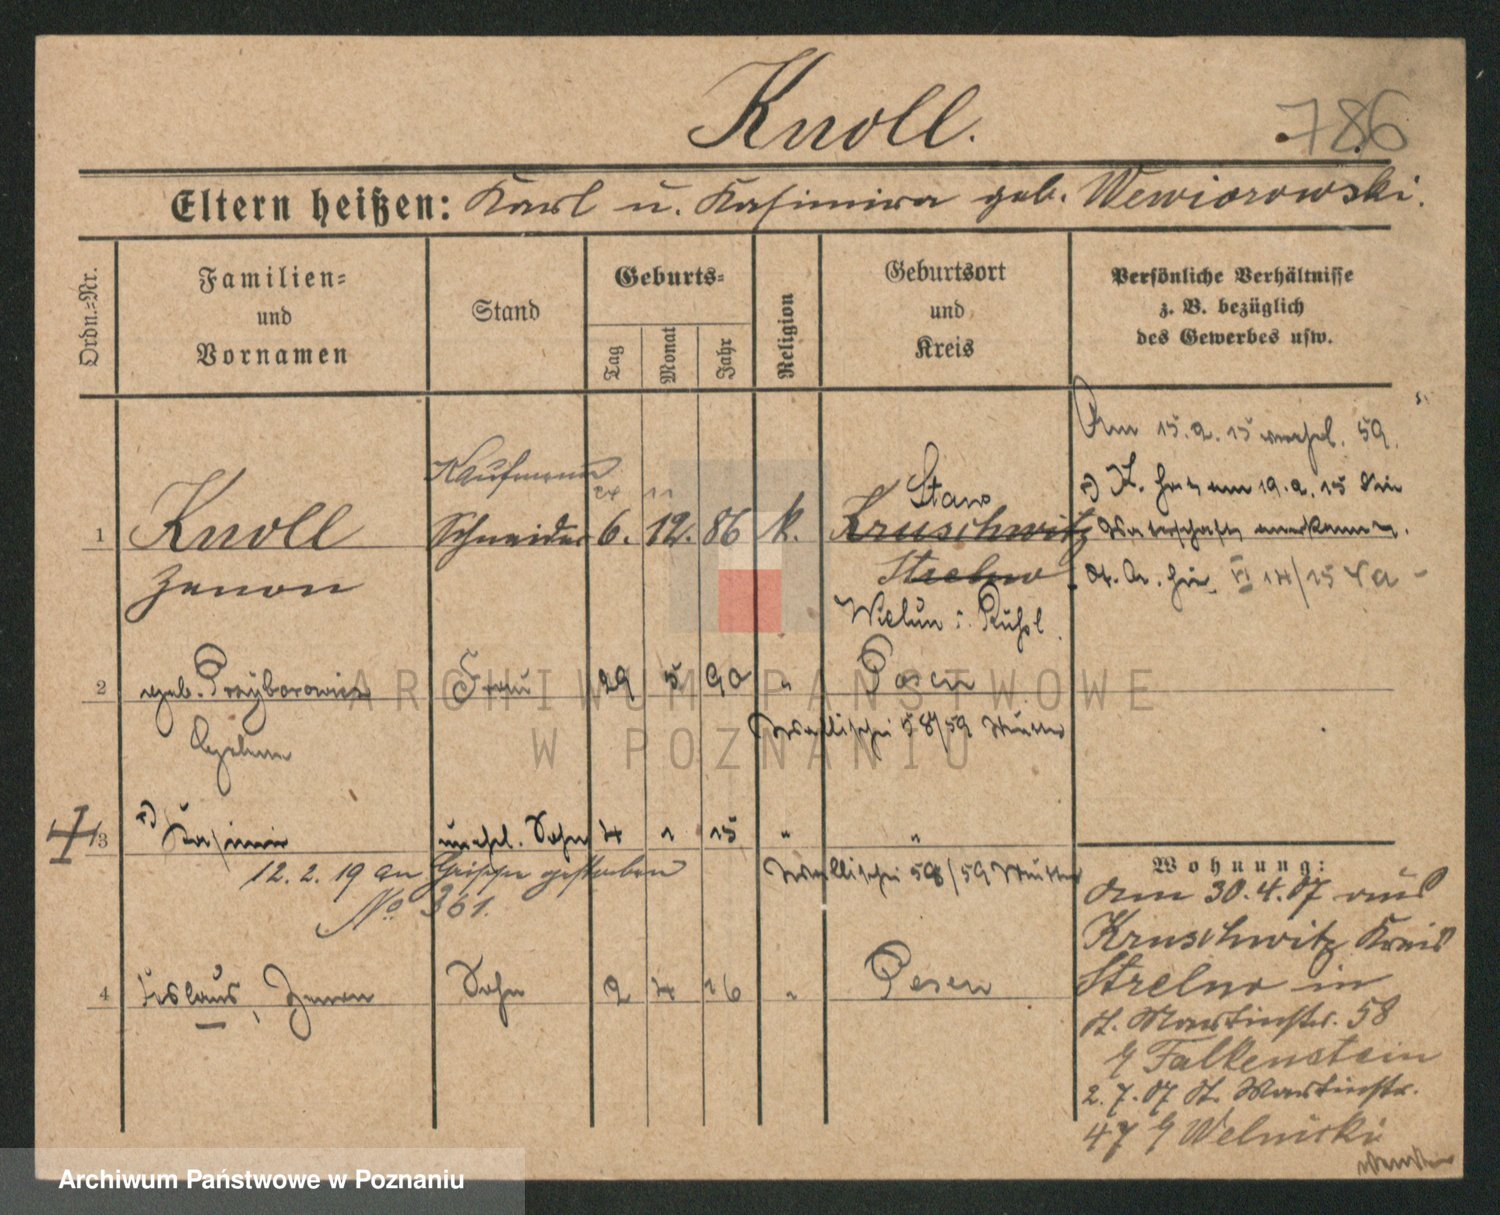 Knoll.
786
Eltern heißen: Karl u. Kasimira geb. Wewiorowski.
Ordn.-Nr.
Familien-
und
Vornamen
Stand
Geburts-
Tag
Monat
Jahr
Religion
Geburtsort
und
Kreis
Persönliche Verhältnisse
z. B. bezüglich
des Gewerbes usw.
Am 15.2.15 59.
Kaufmann
1 Knoll Schneider 6. 12. 86 k. Kruschwitz
Zenon
Staw
Strelno
Wielun i. Rußl.
K. hat am 19.2.15 die
Vaterschaft anerkannt.
VI 14/15
2 geb. Przyborowicz Frau 29 5 90 " Posen
Wallischei 58/59 Mutter
3 Kasimir unehel. Sohn 4 1 15 " "
12.2.19 an Grippe gestorben
No 361.
Wallischei 58/59 Mutter
4 Zenon Sohn 2 4 16 " Posen
Wohnung:
Am 30.4.07 aus
Kruschwitz Kreis
Strelno in
St. Martinstr. 58
Falkenstein
2.7.07 St. Martinstr.
47 Welnitzki
wenden
ARCHIWUM PAŃSTWOWE
W POZNANIU
Archiwum Państwowe w Poznaniu